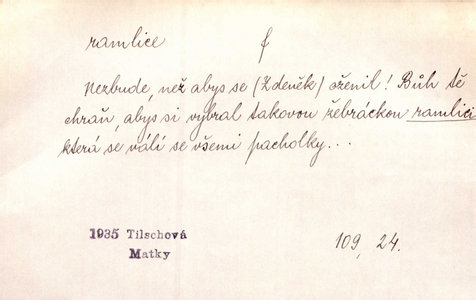 ramlice f
Nezbude, než abys se (Zdeněk) oženil! Bůh tě
chraň, abys si vybral takovou žebráckou ramlici
která se válí se všemi pacholky...
1935 Tilschová
Matky
109, 24.